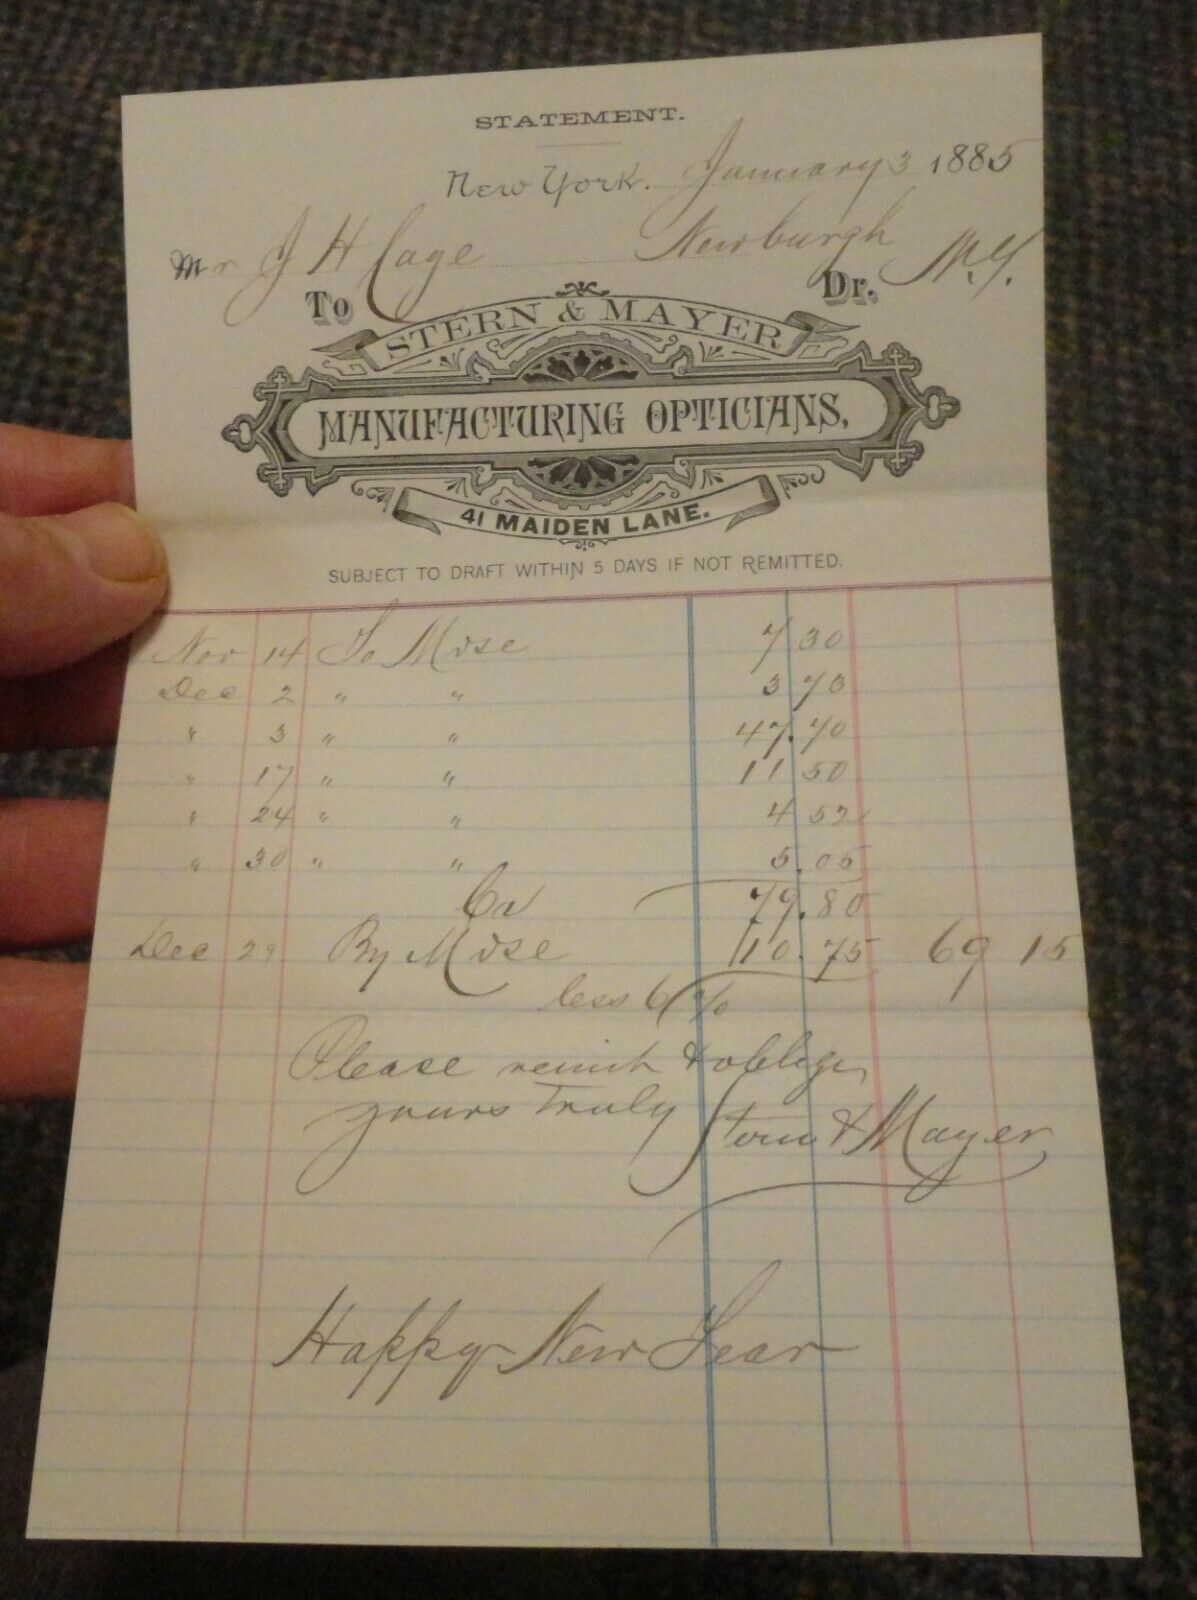 STATEMENT.
New York. January 3 1885
Mr J H Cage Newburgh N.Y.
To Dr.
STERN & MAYER
MANUFACTURING OPTICIANS,
41 MAIDEN LANE.
SUBJECT TO DRAFT WITHIN 5 DAYS IF NOT REMITTED.
Nov 14 To Mdse 7 30
Dec 2 " " 3 73
" 3 " " 47.70
" 17 " " 11 50
" 24 " " 4 52
" 30 " " 5.05
Cr 79.80
Dec 29 By Mdse 10.75 69 15
less 6%
Please remit & oblige,
yours Truly Stern & Mayer
Happy New Year